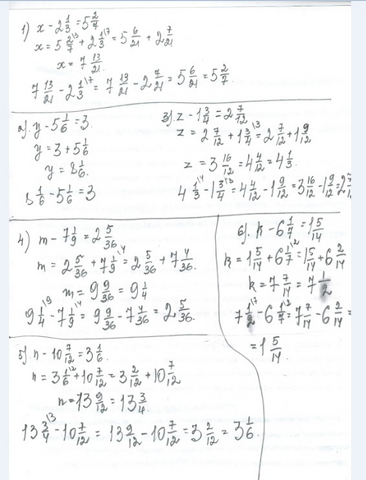 1) x - 2 1/3 = 5 2/7
x = 5 2/7 \3 + 2 1/3 \7 = 5 6/21 + 2 7/21
x = 7 13/21.
7 13/21 - 2 1/3 \7 = 7 13/21 - 2 7/21 = 5 6/21 = 5 2/7.
2). y - 5 1/6 = 3.
y = 3 + 5 1/6
y = 8 1/6.
8 1/6 - 5 1/6 = 3
3). z - 1 3/4 = 2 7/12
z = 2 7/12 + 1 3/4 \3 = 2 7/12 + 1 9/12
z = 3 16/12 = 4 4/12 = 4 1/3.
4 1/3 \4 - 1 3/4 \3 = 4 4/12 - 1 9/12 = 3 16/12 - 1 9/12 = 2 7/12
4) m - 7 1/9 = 2 5/36
m = 2 5/36 + 7 1/9 \4 = 2 5/36 + 7 4/36
m = 9 9/36 = 9 1/4
9 1/4 \9 - 7 1/9 \4 = 9 9/36 - 7 4/36 = 2 5/36.
5) n - 10 7/12 = 3 1/6.
n = 3 1/6 \2 + 10 7/12 = 3 2/12 + 10 7/12
n = 13 9/12 = 13 3/4.
13 3/4 \3 - 10 7/12 = 13 9/12 - 10 7/12 = 3 2/12 = 3 1/6.
6). k - 6 1/7 = 1 5/14
k = 1 5/14 + 6 1/7 \2 = 1 5/14 + 6 2/14
k = 7 7/14 = 7 1/2
7 1/2 \7 - 6 1/7 \2 = 7 7/14 - 6 2/14 =
= 1 5/14.